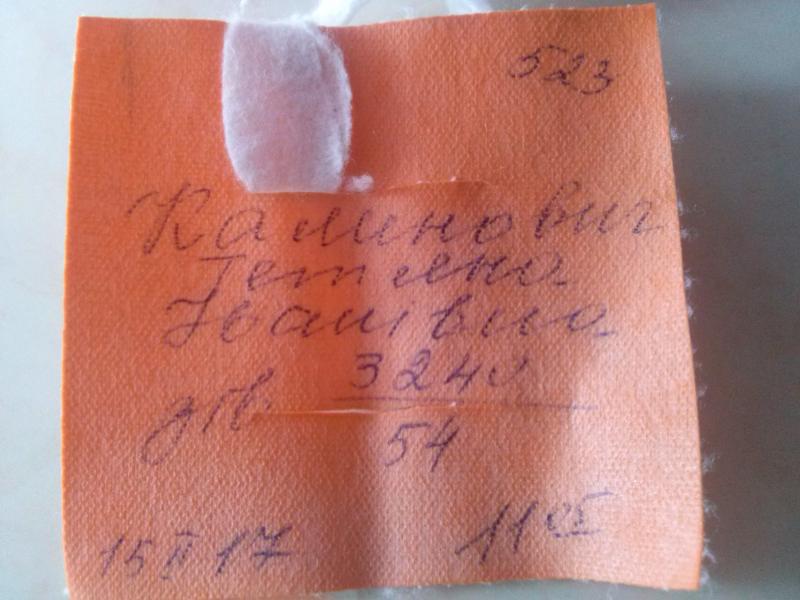 523
Каленович
Тетяна
Іванівна
дів. 3240
54
15 II 17 11 05